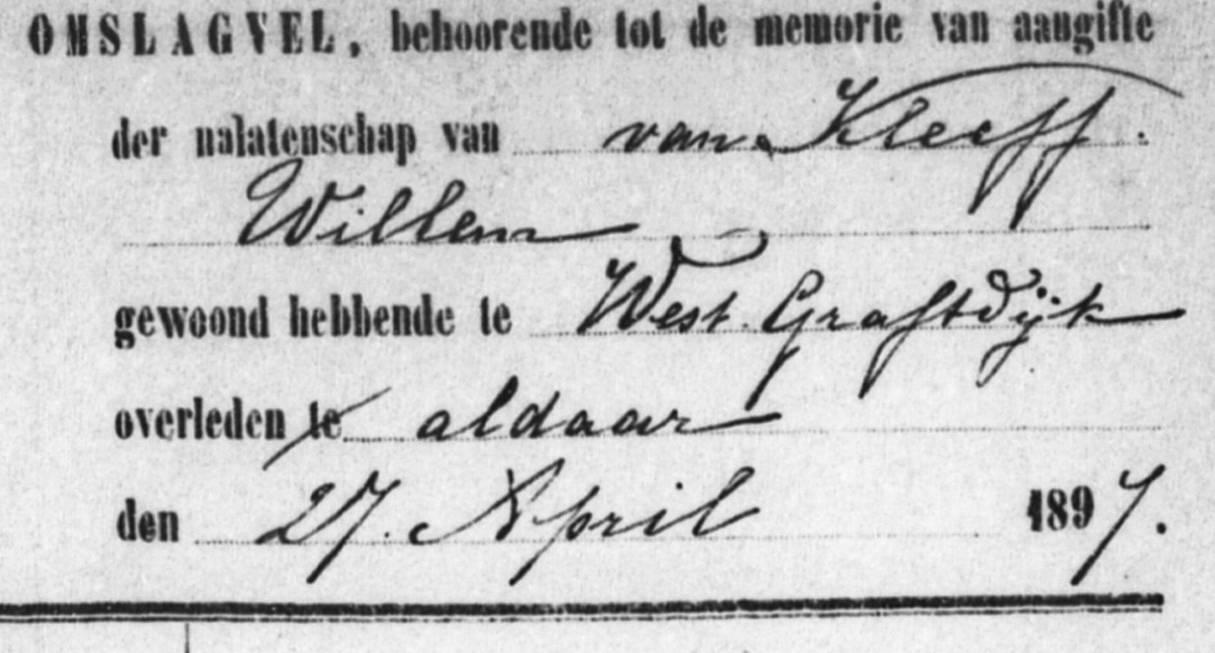 OMSLAGVEL, behoorende tot de memorie van aangifte
der nalatenschap van van Kleeff.
Willem
gewoond hebbende te West. Graftdijk
overleden te aldaar
den 27. April 1897.